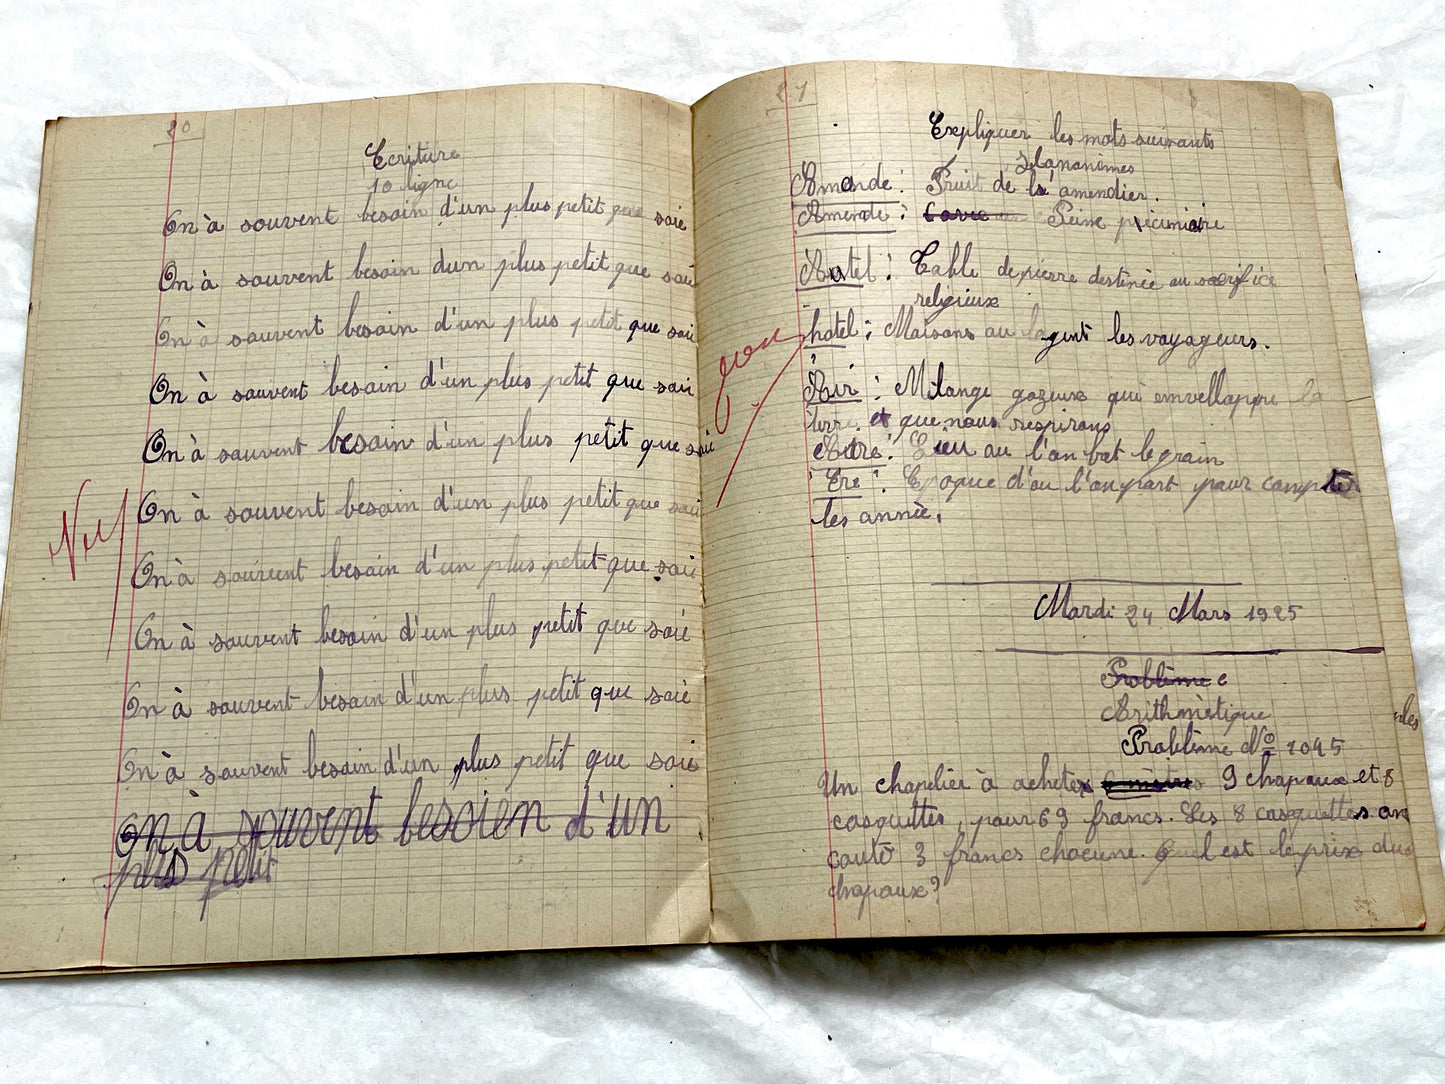 20
Ecriture
10 ligne
On à souvent besoin d'un plus petit que soie
On à souvent besoin dun plus petit que soie
On à souvent besoin d'un plus petit que soie
On à souvent besoin d'un plus petit que soie
On à souvent besoin d'un plus petit que soie
On à souvent besoin d'un plus petit que soie
On à souvent besoin d'un plus petit que soie
On à souvent besoin d'un plus petit que soie
On à souvent besoin d'un plus petit que soie
On à souvent besoin d'un plus petit que soie
On à souvent besoin d'un
plus petit
Nul
21
Expliquer les mots suivants
Amande : Fruit de la amendier.
Amende : Peine pécuniaire
Autel : Table de pierre destinée au sacrifice
religieux
hotel : Maisons ou lagent les voyageurs.
Air : Mélange gazeux qui envellappe la
terre et que nous respirons
Aire : Lieu ou l'on bat le grain
Ere : Epoque d'ou l'on part pour compter
les année.
Mardi 24 Mars 1925
Problème
Arithmètique
Problème No 1045
Un chapelier à acheter 9 chapaux et 8
casquettes, pour 69 francs. Les 8 casquettes on
coutè 3 francs chacune. Quel est le prix des
chapaux?